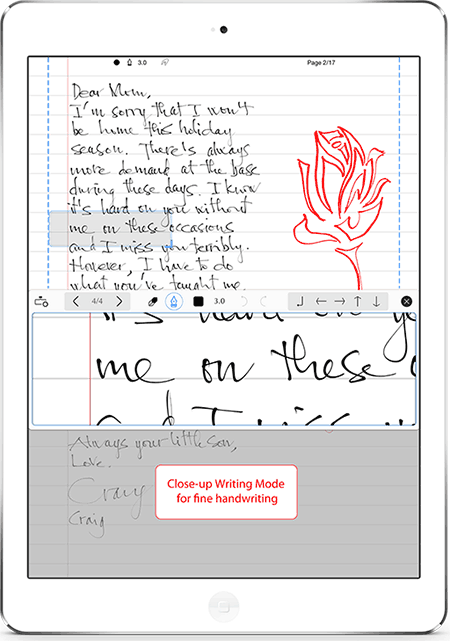 3.0
Page 2/17
Dear Mom,
I'm sorry that I won't
be home this holiday
season. There's always
more demand at the base
during these days. I know
it's hard on you without
me on these occasions
and I miss you terribly.
However, I have to do
what you've taught me.
4/4
3.0
it's hard on yo
me on these o
and I miss you
Always your little son,
Love.
Craig
Craig
Close-up Writing Mode
for fine handwriting